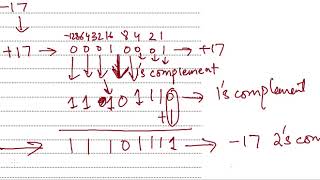 -17
-128 64 32 16 8 4 2 1
+17 → 0 0 0 1 0 0 0 1 → +17
1's complement
1 1 1 0 1 1 1 0 → 1's complement
+ 1
→ 1 1 1 0 1 1 1 1 → -17 2's com